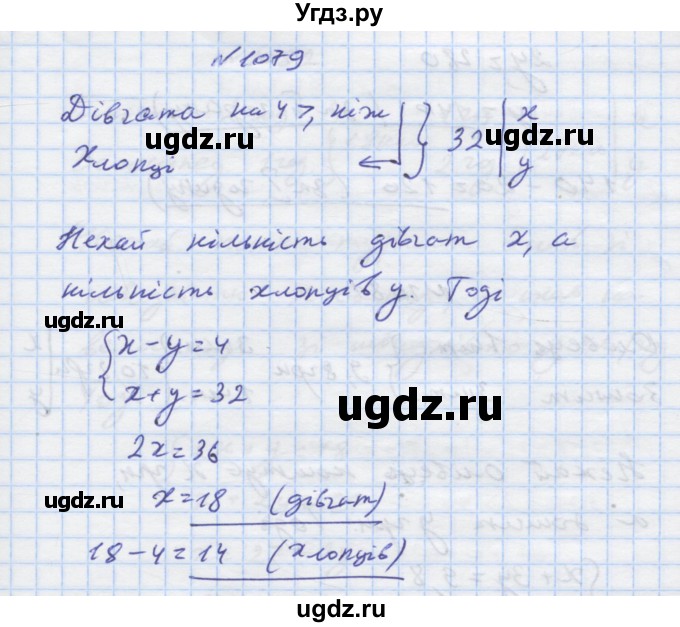 Угдз.ру
№1079
Дівчата на 4 >, ніж
Хлопці
32
x
y
Нехай кількість дівчат x, а
кількість хлопців y. Тоді
x-y=4
x+y=32
2x=36
x=18 (дівчат)
18-4=14 (хлопців)
ugdz.ru
ugdz.ru
ugdz.ru
ugdz.ru
ugdz.ru
ugdz.ru
ugdz.ru